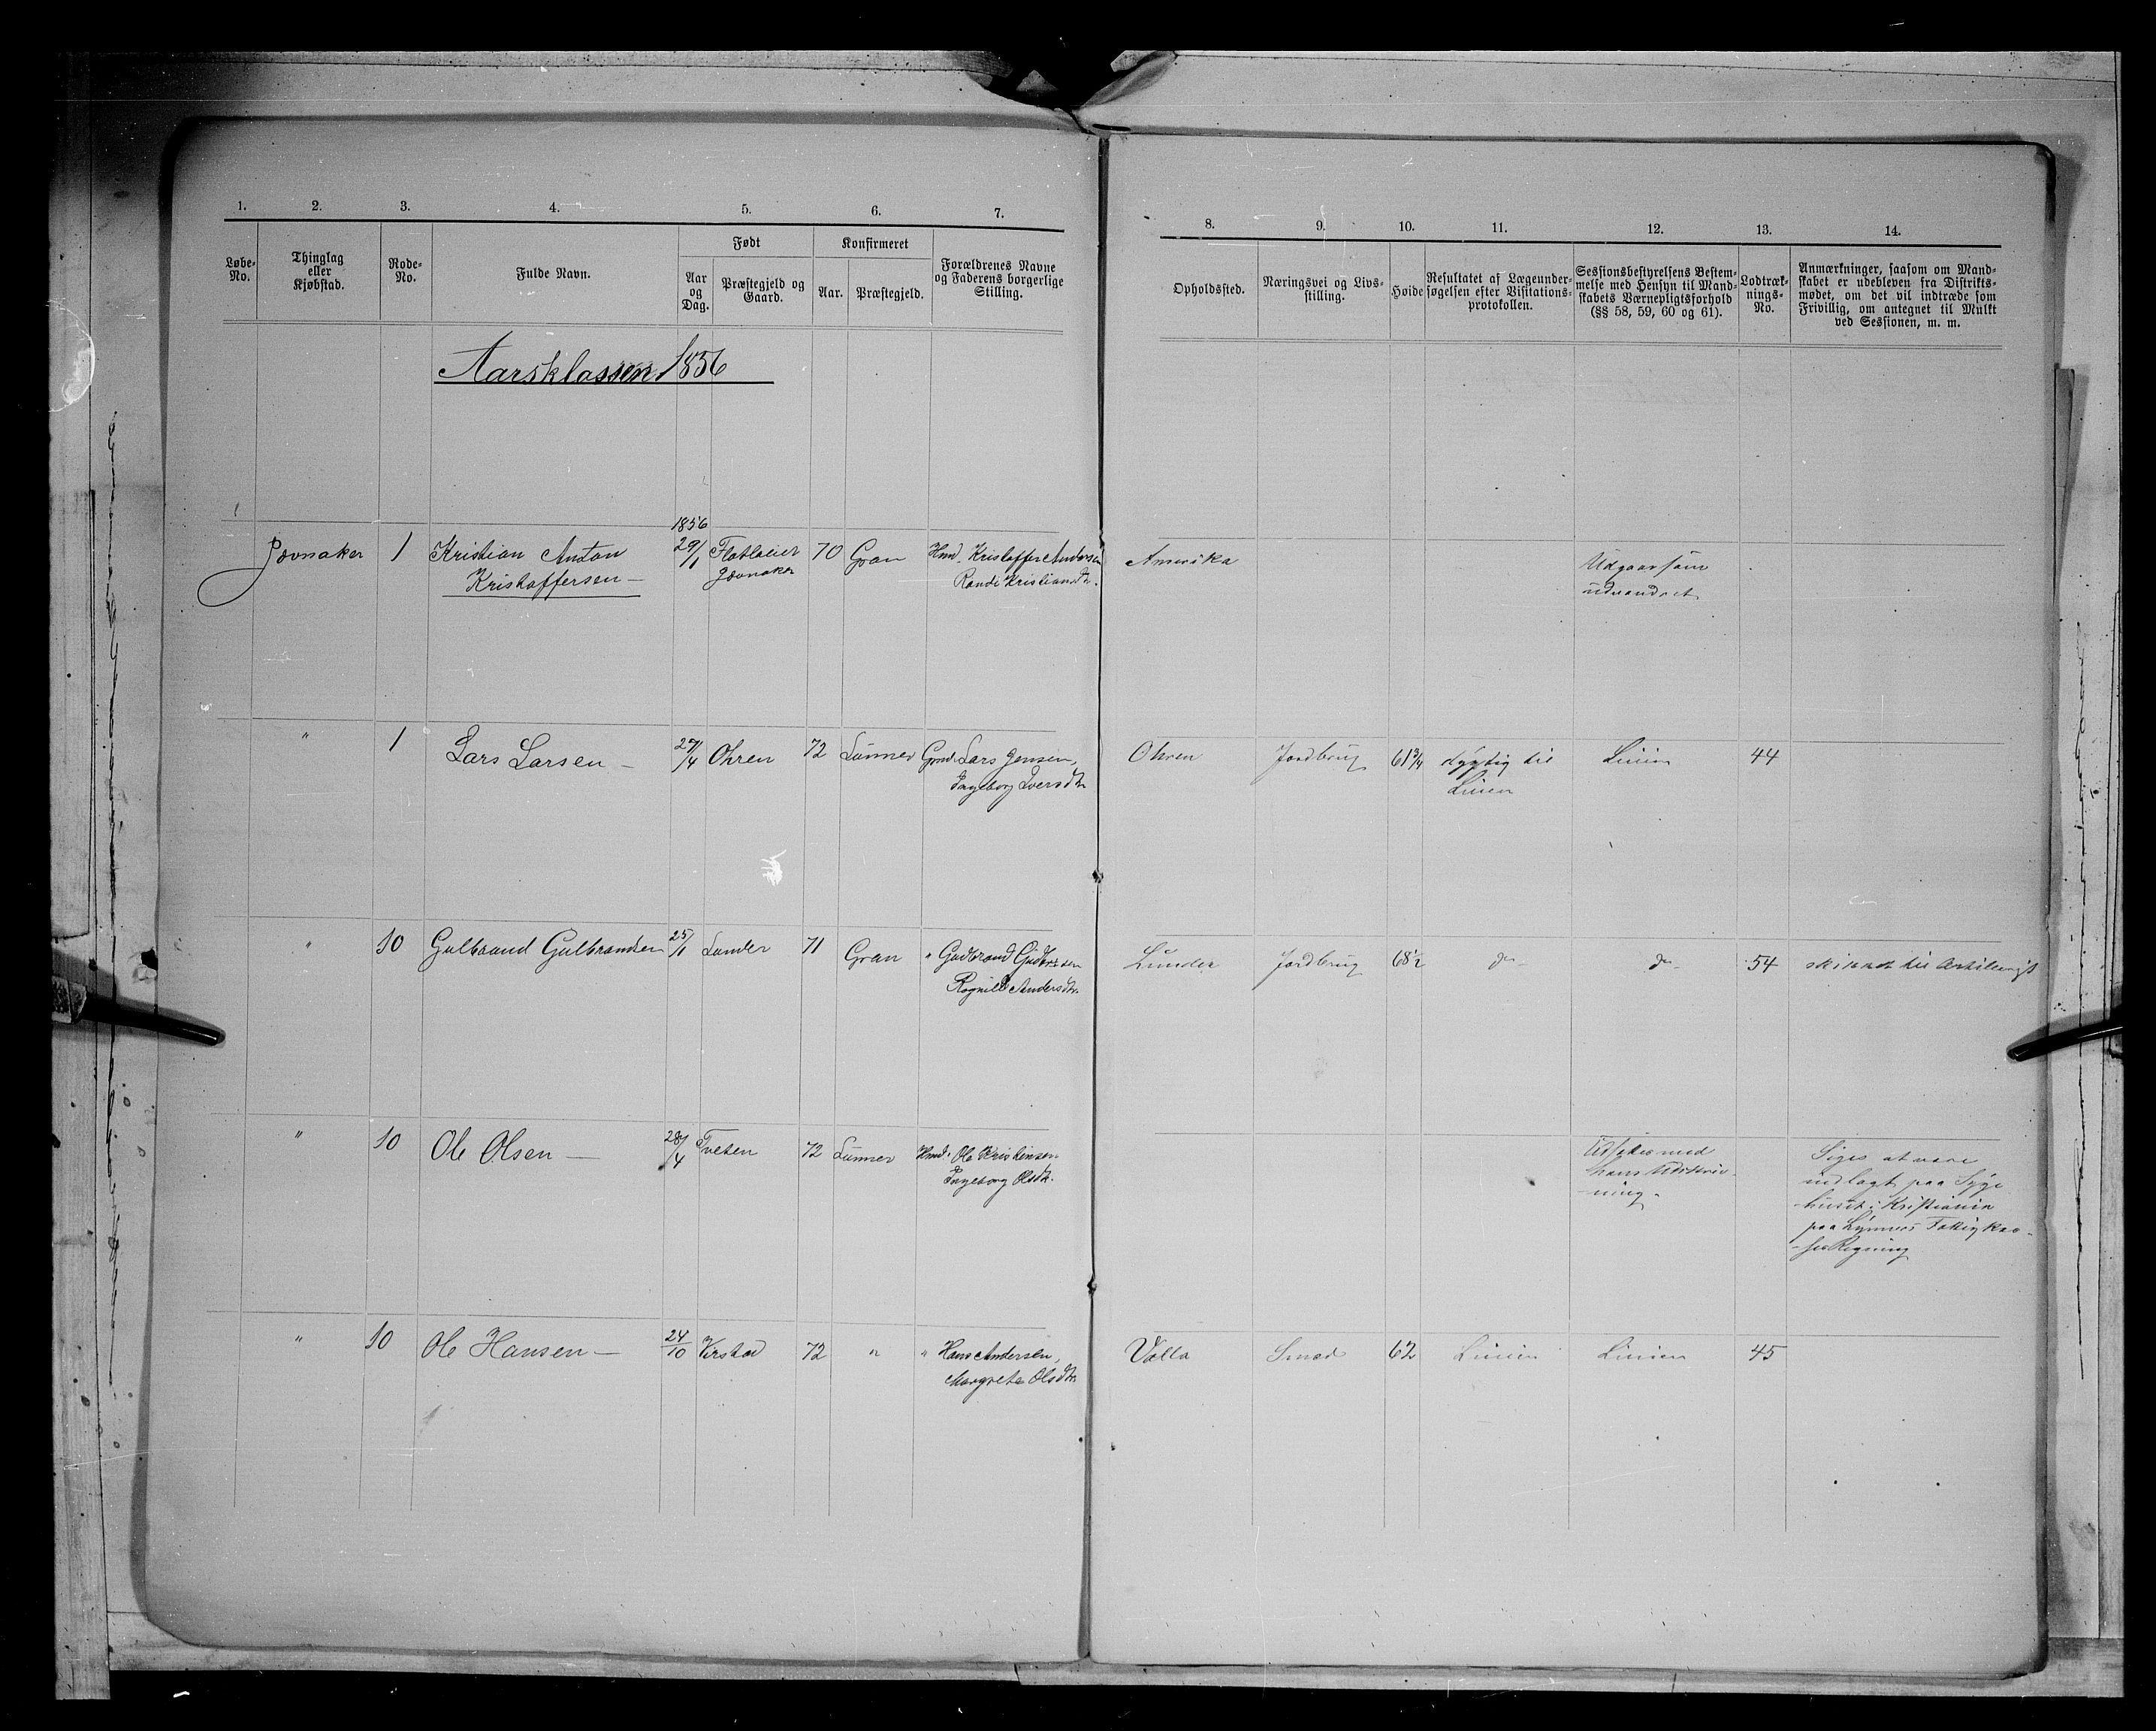 1. 2. 3. 4. 5. 6. 7.
Løbe-No. Thinglag eller Kjøbstad. Rode-No. Fulde Navn. Født Aar og Dag. Præstegjeld og Gaard. Konfirmeret Aar. Præstegjeld. Forældrenes Navne og Faderens borgerlige Stilling.
8. 9. 10. 11. 12. 13. 14.
Opholdssted. Næringsvei og Livsstilling. Høide Resultatet af Lægeundersøgelsen efter Visitationsprotokollen. Sessionsbestyrelsens Bestemmelse med Hensyn til Mandskabets Værnepligtsforhold (§§ 58, 59, 60 og 61). Lodtræknings-No. Anmærkninger, saasom om Mandskabet er udebleven fra Distriktsmødet, om det vil indtræde som Frivillig, om antegnet til Mulkt ved Sessionen, m. m.
Aarsklassen 1856
1856
Jævnaker 1 Kristian Anton 29/1 70 Gran Hmd. Kristoffer Andersen Amerika Udgaar som
Kristoffersen — Jævnaker Randi Kristiansdtr. udvandret
" 1 Lars Larsen — 29/4 Ohren 72 Lunner Grmd. Lars Jensen, Ohren Jordbrug 61 3/4 dygtig til Linien 44
Ingeborg Iversdtr Linien
" 10 Gulbrand Gulbrandsen 25/1 Lunder 71 Gran " Gudbrand Gudbrsen Lunder Jordbrug 68 1/2 do- do- 54 skikket til Artilleriet
Rognild Andersdtr.
" 10 Ole Olsen — 28/4 Tveten 72 Lunner Hmd. Ole Kristensen Udsættes med Siges at være
Ingeborg Olsdtr. hans Udskriv- indlagt paa Syge
-ning. -huset i Kristiania
paa Lynners Fattigkas-
-ses Regning
" 10 Ole Hansen — 24/10 Kirstad 72 " " Hans Andersen, Valla Smed 62 Linien Linien 45
Margrete Olsdtr